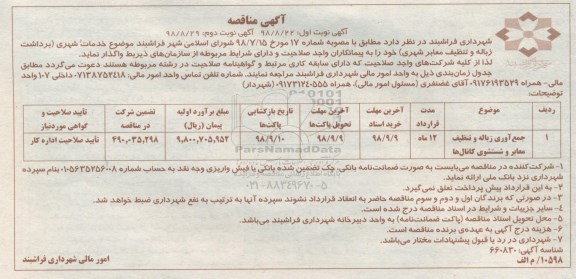 آگهی مناقصه
آگهی نوبت اول: ۹۸/۸/۲۲ آگهی نوبت دوم: ۹۸/۸/۲۹
شهرداری فراشبند در نظر دارد مطابق با مصوبه شماره ۱۷ مورخ ۹۸/۷/۱۵ شورای اسلامی شهر فراشبند موضوع خدمات شهری (برداشت
زباله و تنظیف معابر شهری) خود را به پیمانکاران واجد صلاحیت و دارای شرایط مربوطه از سازمان‌های ذیربط واگذار نماید.
لذا از کلیه شرکت‌های واجد صلاحیت که دارای سابقه کاری مرتبط و گواهینامه صلاحیت در رشته مربوطه هستند دعوت می‌گردد مطابق
جدول زمان‌بندی ذیل به واحد امور مالی شهرداری فراشبند مراجعه نمایند. شماره تلفن تماس واحد امور مالی: ۰۷۱۳۸۷۵۲۴۱۸ داخلی ۱۰۷ واحد
مالی- همراه ۰۹۱۷۶۱۹۳۵۲۹ آقای غضنفری (مسئول امور مالی)، همراه ۰۹۱۷۳۱۲۰۵۵۵ (شهردار)
توضیحات:
ردیف موضوع مدت قرارداد آخرین مهلت خرید اسناد آخرین مهلت تحویل پاکت‌ها تاریخ بازگشایی پاکت‌ها مبلغ برآورد اولیه پیمان (ریال) تضمین شرکت در مناقصه تأیید صلاحیت و گواهی موردنیاز
۱ جمع‌آوری زباله و تنظیف معابر و شستشوی کانال‌ها ۱۲ ماه ۹۸/۹/۹ ۹۸/۹/۹ ۹۸/۹/۱۰ ۹,۸۰۰,۷۰۵,۹۵۲ ۴۹۰,۰۳۵,۲۹۸ تأیید صلاحیت اداره کار
ParsNamadData
۰۲۱-۸۸۳۴۹۶۷۰-۵
۱- شرکت‌کننده در مناقصه می‌بایست به صورت ضمانت‌نامه بانکی، چک تضمین شده بانکی یا فیش واریزی وجه نقد به حساب شماره ۰۱۰۵۶۳۵۲۵۶۰۰۸ بنام سپرده
شهرداری نزد بانک ملی ارائه نماید.
۲- به این قرارداد پیش پرداخت تعلق نمی‌گیرد.
۳- در صورتی که برندگان اول و دوم و سوم مناقصه حاضر به انعقاد قرارداد نشوند سپرده آنها به ترتیب به نفع شهرداری ضبط خواهد شد.
۴- سایر جزییات و شرایط در اسناد مناقصه درج شده است.
۵- محل تحویل اسناد مناقصه (پاکت ضمانت‌نامه) به واحد دبیرخانه شهرداری فراشبند می‌باشد.
۶- هزینه درج آگهی به عهده‌ی برنده مناقصه است.
۷- شهرداری در رد یا قبول پیشنهادات مختار می‌باشد.
شناسه آگهی: ۶۶۰۸۳۰
۱۰۵۹۸/ م الف
امور مالی شهرداری فراشبند